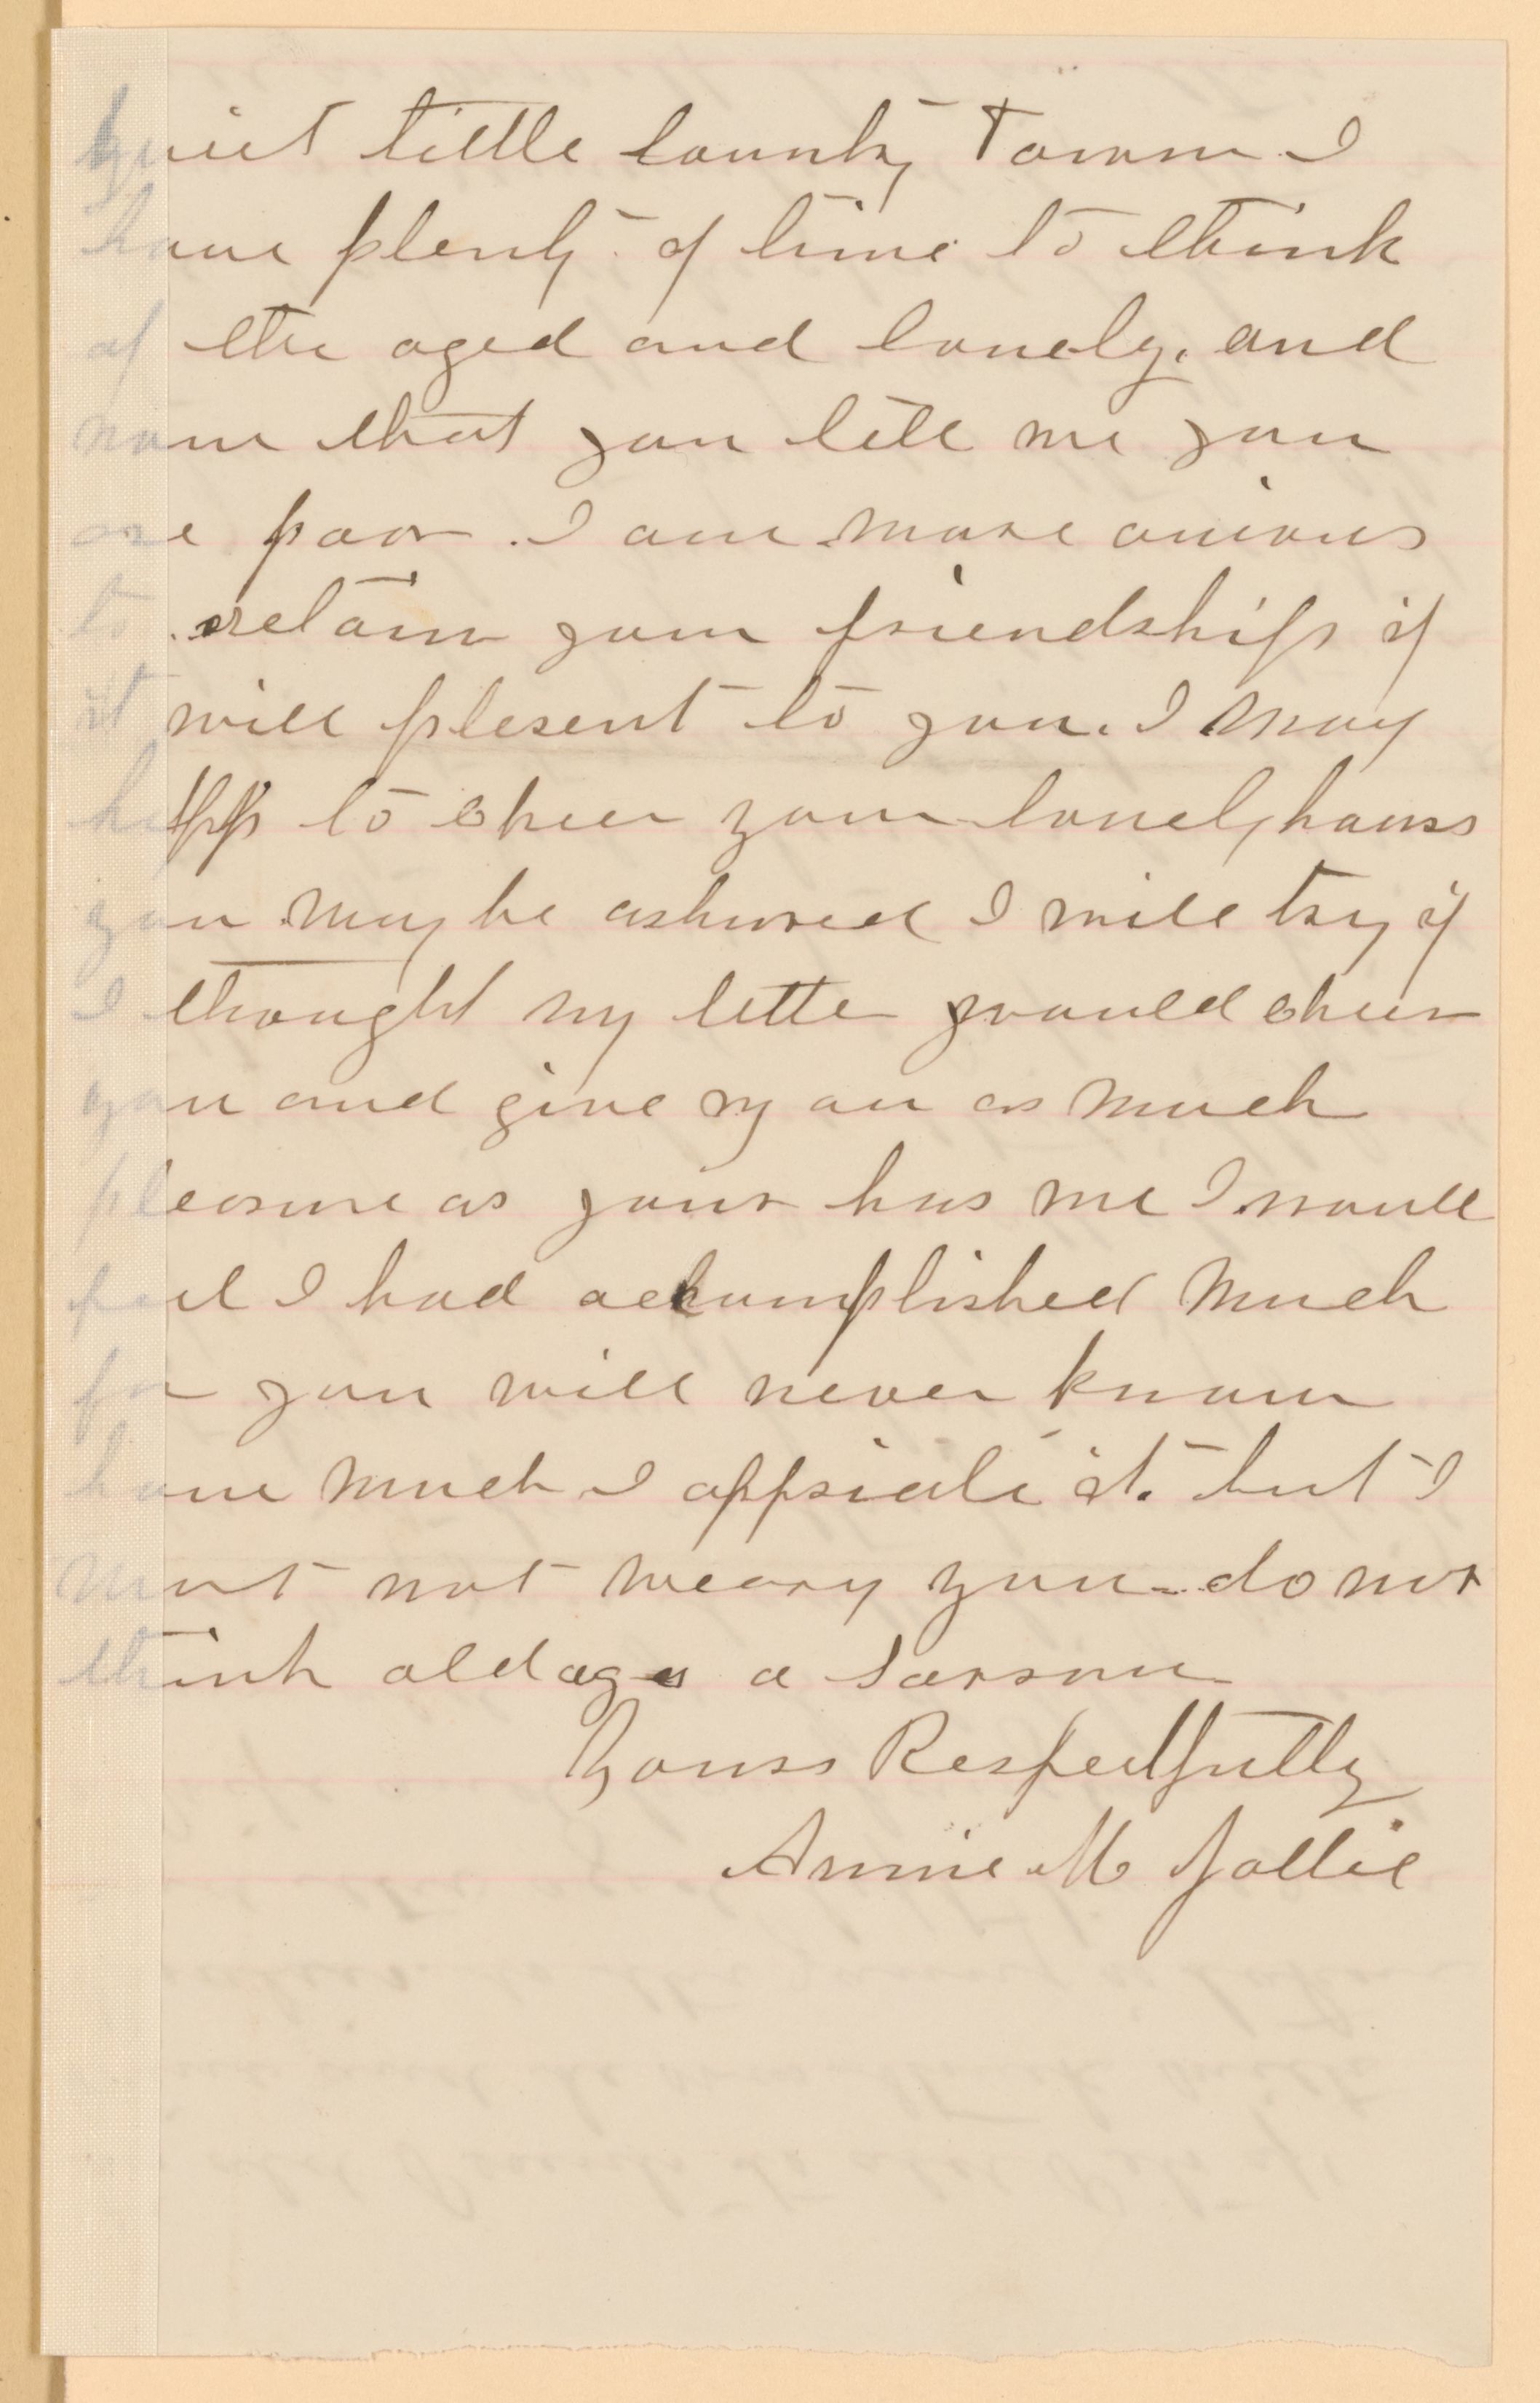 quiet little County Town I
have plenty of time to think
of the aged and lonely. and
now that you tell me you
are poor. I am more anious
to retain your friendship if
it will plesent to you. I may
happ to cheer your lonely hours
you may be ashured I will try if
I thought my letter would cheer
you and give you as much
pleasure as your has me I would
feel I had accomplished much
for you will never know
how much I appriciate it. but I
must not weary you do not
think old age a
Yours Respectfully
Annie M Jollie